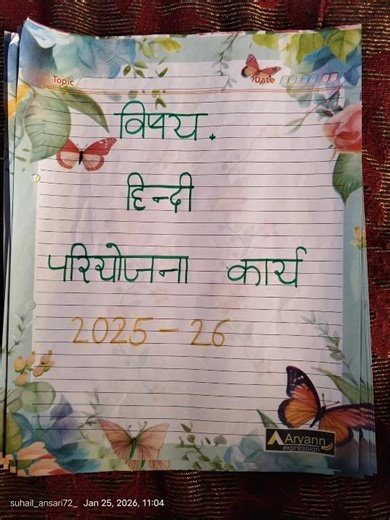 Topic
Date
विषय .
हिन्दी
परियोजना कार्य
2025-26
Aryann
expression
suhail_ansari72_ Jan 25, 2026, 11:04